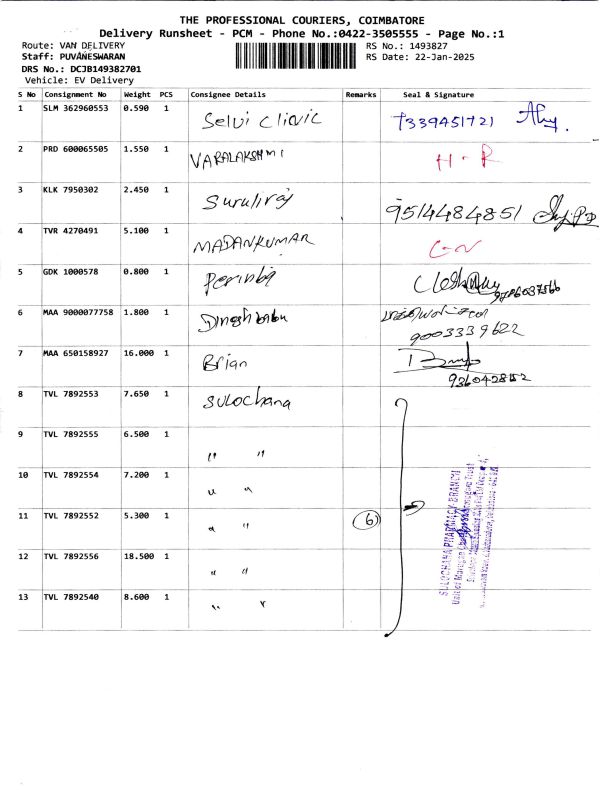 THE PROFESSIONAL COURIERS, COIMBATORE
Delivery Runsheet - PCM - Phone No.:0422-3505555 - Page No.:1
Route: VAN DELIVERY RS No.: 1493827
Staff: PUVANESWARAN RS Date: 22-Jan-2025
DRS No.: DCJB149382701
Vehicle: EV Delivery
S No Consignment No Weight PCS Consignee Details Remarks Seal & Signature
1 SLM 362960553 0.590 1 Selvi Clinic 7339451721
2 PRD 600065505 1.550 1 VARALAKSHMI H-R
3 KLK 7950302 2.450 1 Suruliraj 9514484851
4 TVR 4270491 5.100 1 MADANKUMAR
5 GDK 1000578 0.800 1
6 MAA 9000077758 1.800 1 Dinesh babu
9003339622
7 MAA 650158927 16.000 1 Brian
8 TVL 7892553 7.650 1 Sulochana
9 TVL 7892555 6.500 1 " "
10 TVL 7892554 7.200 1 " "
11 TVL 7892552 5.300 1 " " 6
12 TVL 7892556 18.500 1 " "
13 TVL 7892540 8.600 1 " "
SULOCHANA PHARMACY BRANCH